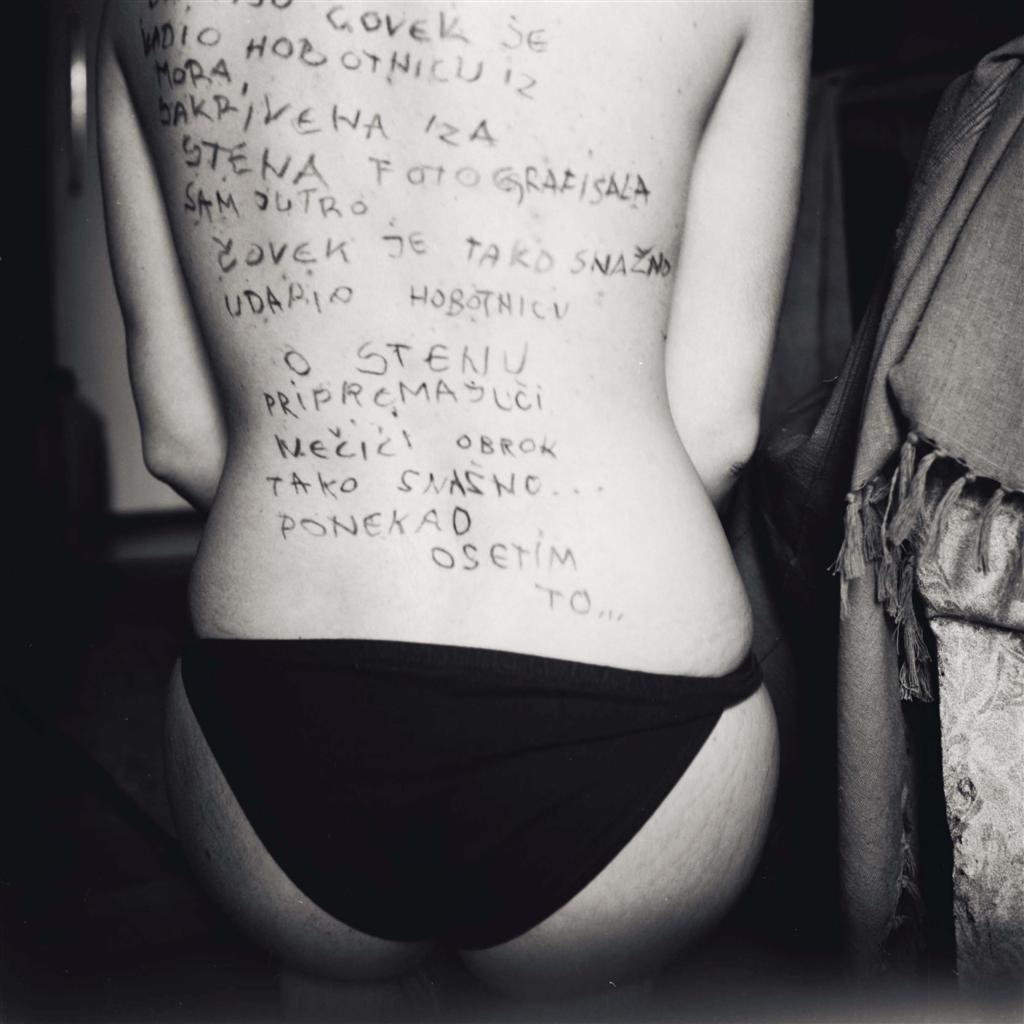 ČOVEK JE
VADIO HOBOTNICU IZ
MORA,
SAKRIVENA IZA
STENA FOTOGRAFISALA
SAM JUTRO
ČOVEK JE TAKO SNAŽNO
UDARIO HOBOTNICU
O STENU
PRIPREMAJUĆI
NEČIČI OBROK
TAKO SNAŠNO...
PONEKAD
OSETIM
TO...